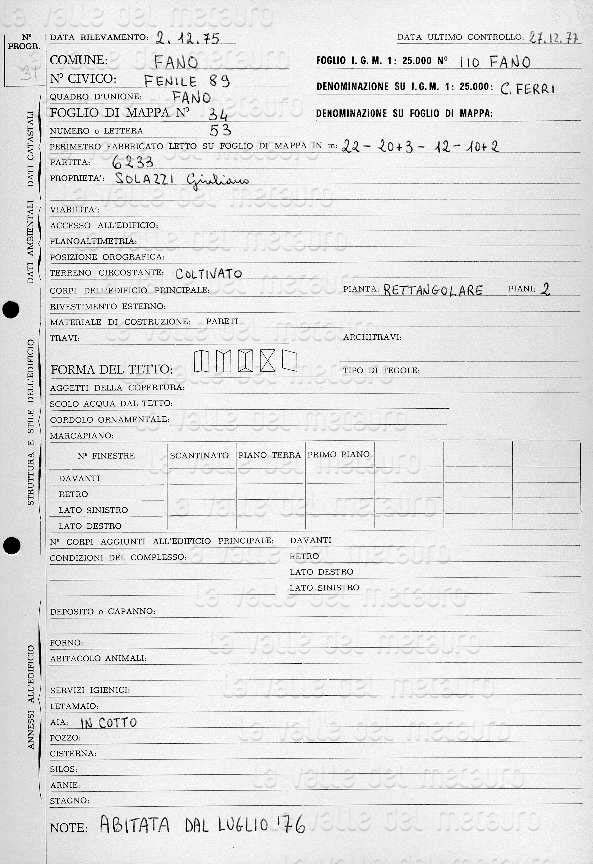 N° PROGR. DATA RILEVAMENTO: 2.12.75 DATA ULTIMO CONTROLLO: 27.12.77
COMUNE: FANO FOGLIO I.G.M. 1: 25.000 N° 110 FANO
N° CIVICO: FENILE 89 DENOMINAZIONE SU I.G.M. 1: 25.000: C. FERRI
QUADRO D'UNIONE: FANO
FOGLIO DI MAPPA N° 34 DENOMINAZIONE SU FOGLIO DI MAPPA:
NUMERO o LETTERA 53
PERIMETRO FABBRICATO LETTO SU FOGLIO DI MAPPA IN m: 22-20+3-12-10+2
PARTITA: 6233
PROPRIETA': SOLAZZI Giuliano
DATI CATASTALI
VIABILITA':
ACCESSO ALL'EDIFICIO:
PLANOALTIMETRIA:
POSIZIONE OROGRAFICA:
TERRENO CIRCOSTANTE: COLTIVATO
DATI AMBIENTALI
CORPI DELL'EDIFICIO PRINCIPALE: PIANTA: RETTANGOLARE PIANI: 2
RIVESTIMENTO ESTERNO:
MATERIALE DI COSTRUZIONE: PARETI
TRAVI: ARCHITRAVI:
FORMA DEL TETTO: TIPO DI TEGOLE:
AGGETTI DELLA COPERTURA:
SCOLO ACQUA DAL TETTO:
CORDOLO ORNAMENTALE:
MARCAPIANO:
N° FINESTRE SCANTINATO PIANO TERRA PRIMO PIANO
DAVANTI
RETRO
LATO SINISTRO
LATO DESTRO
STRUTTURA E STILE DELL'EDIFICIO
N° CORPI AGGIUNTI ALL'EDIFICIO PRINCIPALE: DAVANTI
CONDIZIONI DEL COMPLESSO: RETRO
LATO DESTRO
LATO SINISTRO
DEPOSITO o CAPANNO:
FORNO:
ABITACOLO ANIMALI:
SERVIZI IGIENICI:
LETAMAIO:
AIA: IN COTTO
POZZO:
CISTERNA:
SILOS:
ARNIE:
STAGNO:
ANNESSI ALL'EDIFICIO
NOTE: ABITATA DAL LUGLIO '76
la valle del metauro